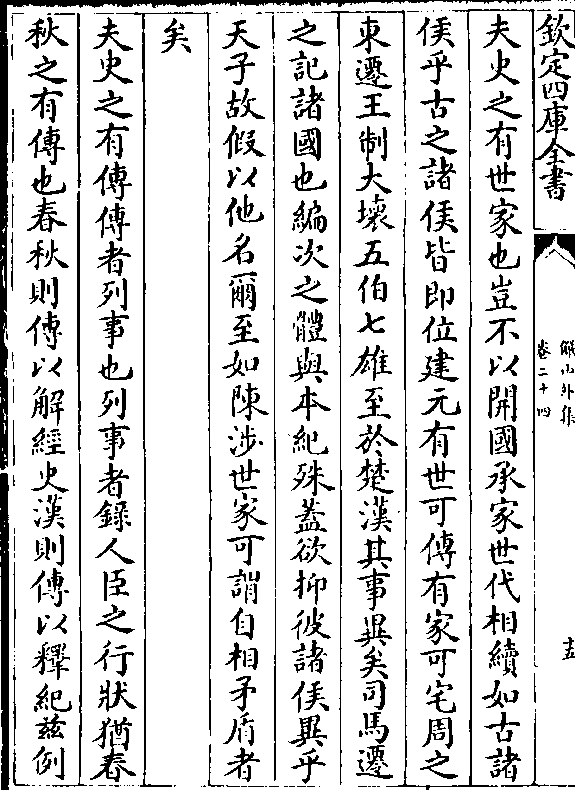 欽定四庫全書
卷二十四
十五
夫史之有世家也豈不以開國承家世代相續如古諸
侯乎古之諸侯皆即位建元有世可傳有家可宅周之
東遷王制大壞五伯七雄至於楚漢其事異矣司馬遷
之記諸國也編次之體與本紀殊蓋欲抑彼諸侯異乎
天子故假以他名爾至如陳涉世家可謂自相矛盾者
矣
夫史之有傳傳者列事也列事者錄人臣之行狀猶春
秋之有傳也春秋則傳以解經史漢則傳以釋紀兹例